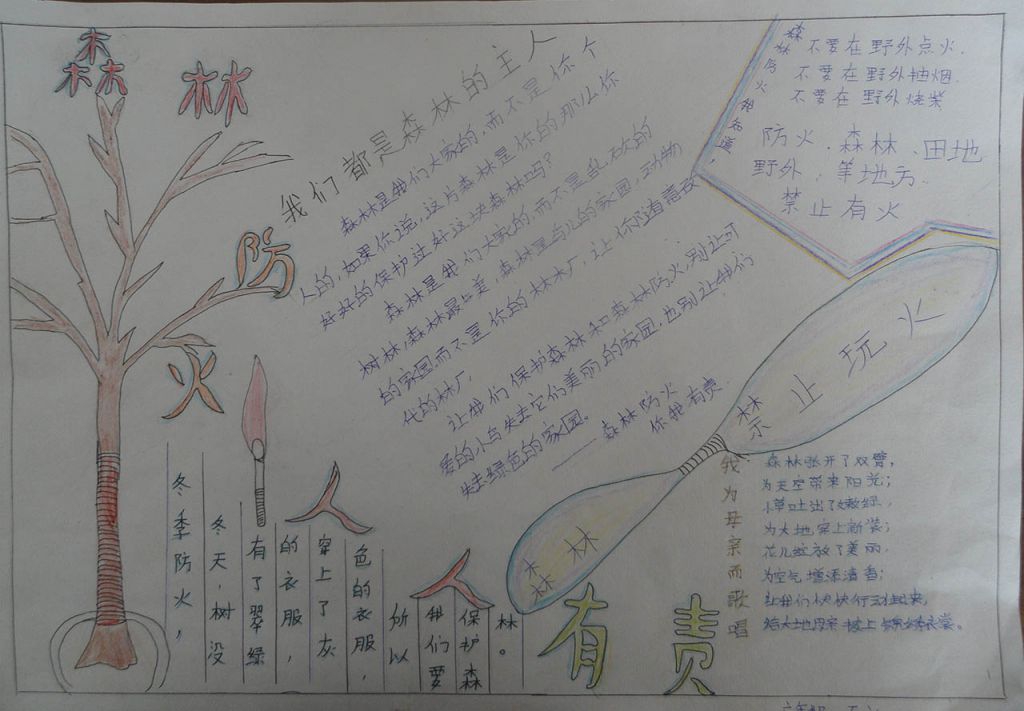 森林
防
火
人人
有责
我们都是森林的主人
森林是我们大家的,而不是你个
人的,如果你说,这片森林是你的那么你
好好的保护过好这块森林吗?
森林是我们大家的,而不是乱砍的
树林,森林最美,森林是鸟儿的家园,动物
的家园而不是你的林木厂,让你随着高
代的林厂
让我们保护森林和森林防火,别让可
爱的小鸟失去它们美丽的家园,也别让我们
失去绿色的家园。
——森林防火
你我有责
森林防火我知道,
不要在野外点火.
不要在野外抽烟.
不要在野外烧柴
防火.森林、田地
野外,等地方.
禁止有火
森林
禁止玩火
冬季防火,
冬天,树没
有了翠绿
的衣服,
穿上了灰
色的衣服,
所以
我们要
保护森
林。
我为母亲而歌唱
森林张开了双臂,
为天空带来阳光;
小草吐出了嫩绿,
为大地穿上新装;
花儿绽放了美丽,
为空气增添清香;
让我们快快行动起来,
给大地母亲披上锦绣衣裳。